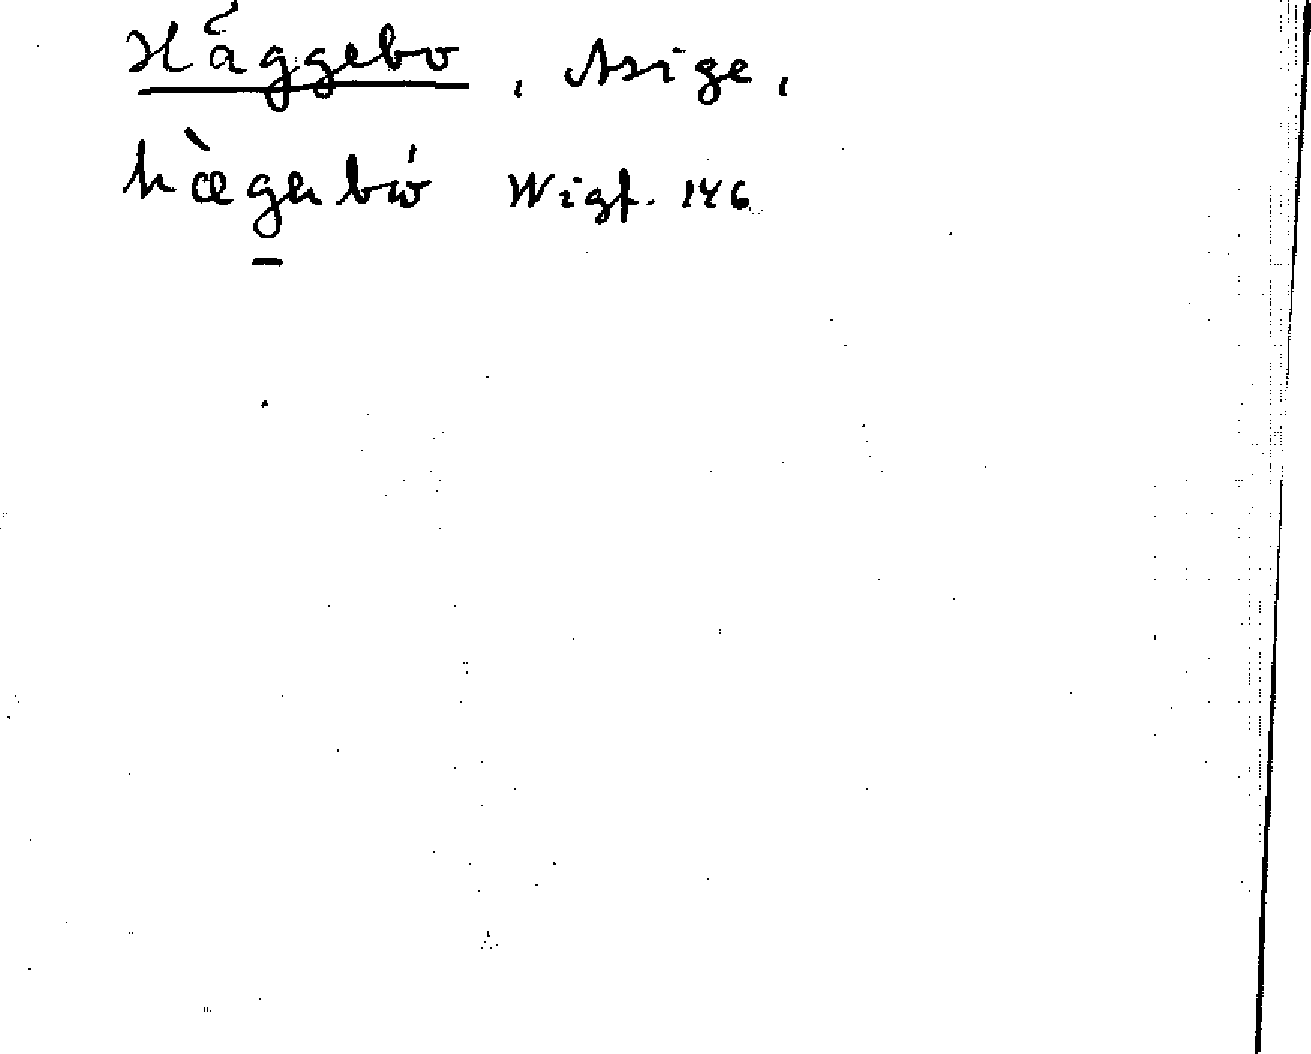 Häggebo, Asige,
hægabo Wigf. 146